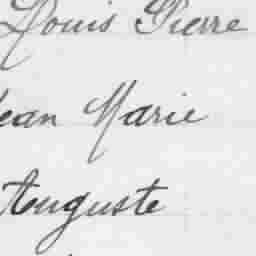 Louis Pierre
Jean Marie
Auguste